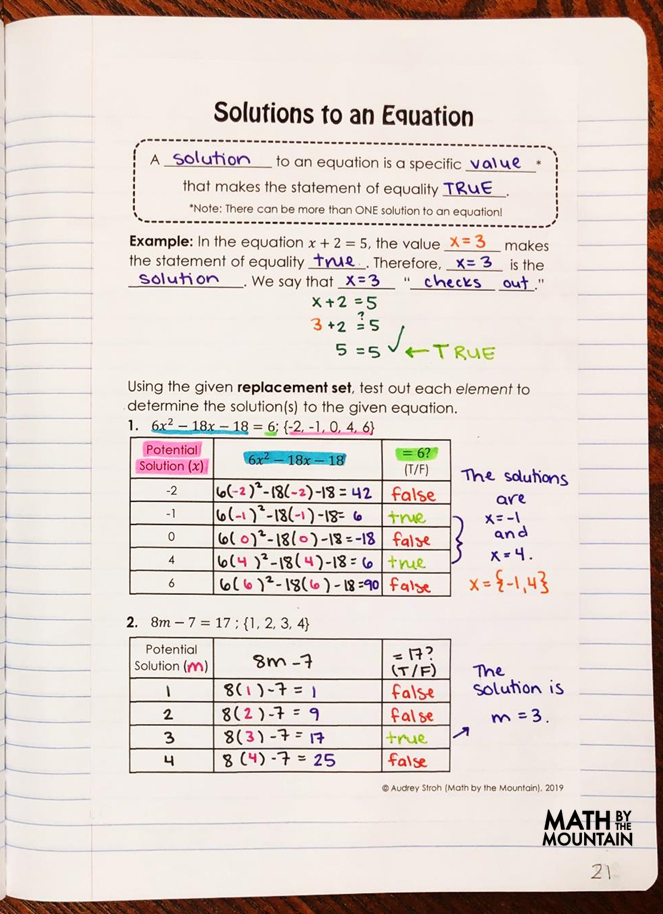 Solutions to an Equation
A solution to an equation is a specific value *
that makes the statement of equality TRUE.
*Note: There can be more than ONE solution to an equation!
Example: In the equation x + 2 = 5, the value x=3 makes
the statement of equality true. Therefore, x=3 is the
solution. We say that x=3 "checks out."
x+2=5
3+2 ?= 5
5=5 ✓ ← TRUE
Using the given replacement set, test out each element to
determine the solution(s) to the given equation.
1. 6x² − 18x − 18 = 6; {-2, -1, 0, 4, 6}
Potential Solution (x) 6x² − 18x − 18 = 6? (T/F)
-2 6(-2)²-18(-2)-18=42 false
-1 6(-1)²-18(-1)-18=6 true
0 6(0)²-18(0)-18=-18 false
4 6(4)²-18(4)-18=6 true
6 6(6)²-18(6)-18=90 false
The solutions
are
x=-1
and
x=4.
x={-1,4}
2. 8m − 7 = 17 ; {1, 2, 3, 4}
Potential Solution (m) 8m-7 =17? (T/F)
1 8(1)-7=1 false
2 8(2)-7=9 false
3 8(3)-7=17 true
4 8(4)-7=25 false
The
solution is
m=3.
© Audrey Stroh (Math by the Mountain), 2019
MATH BY THE
MOUNTAIN
21